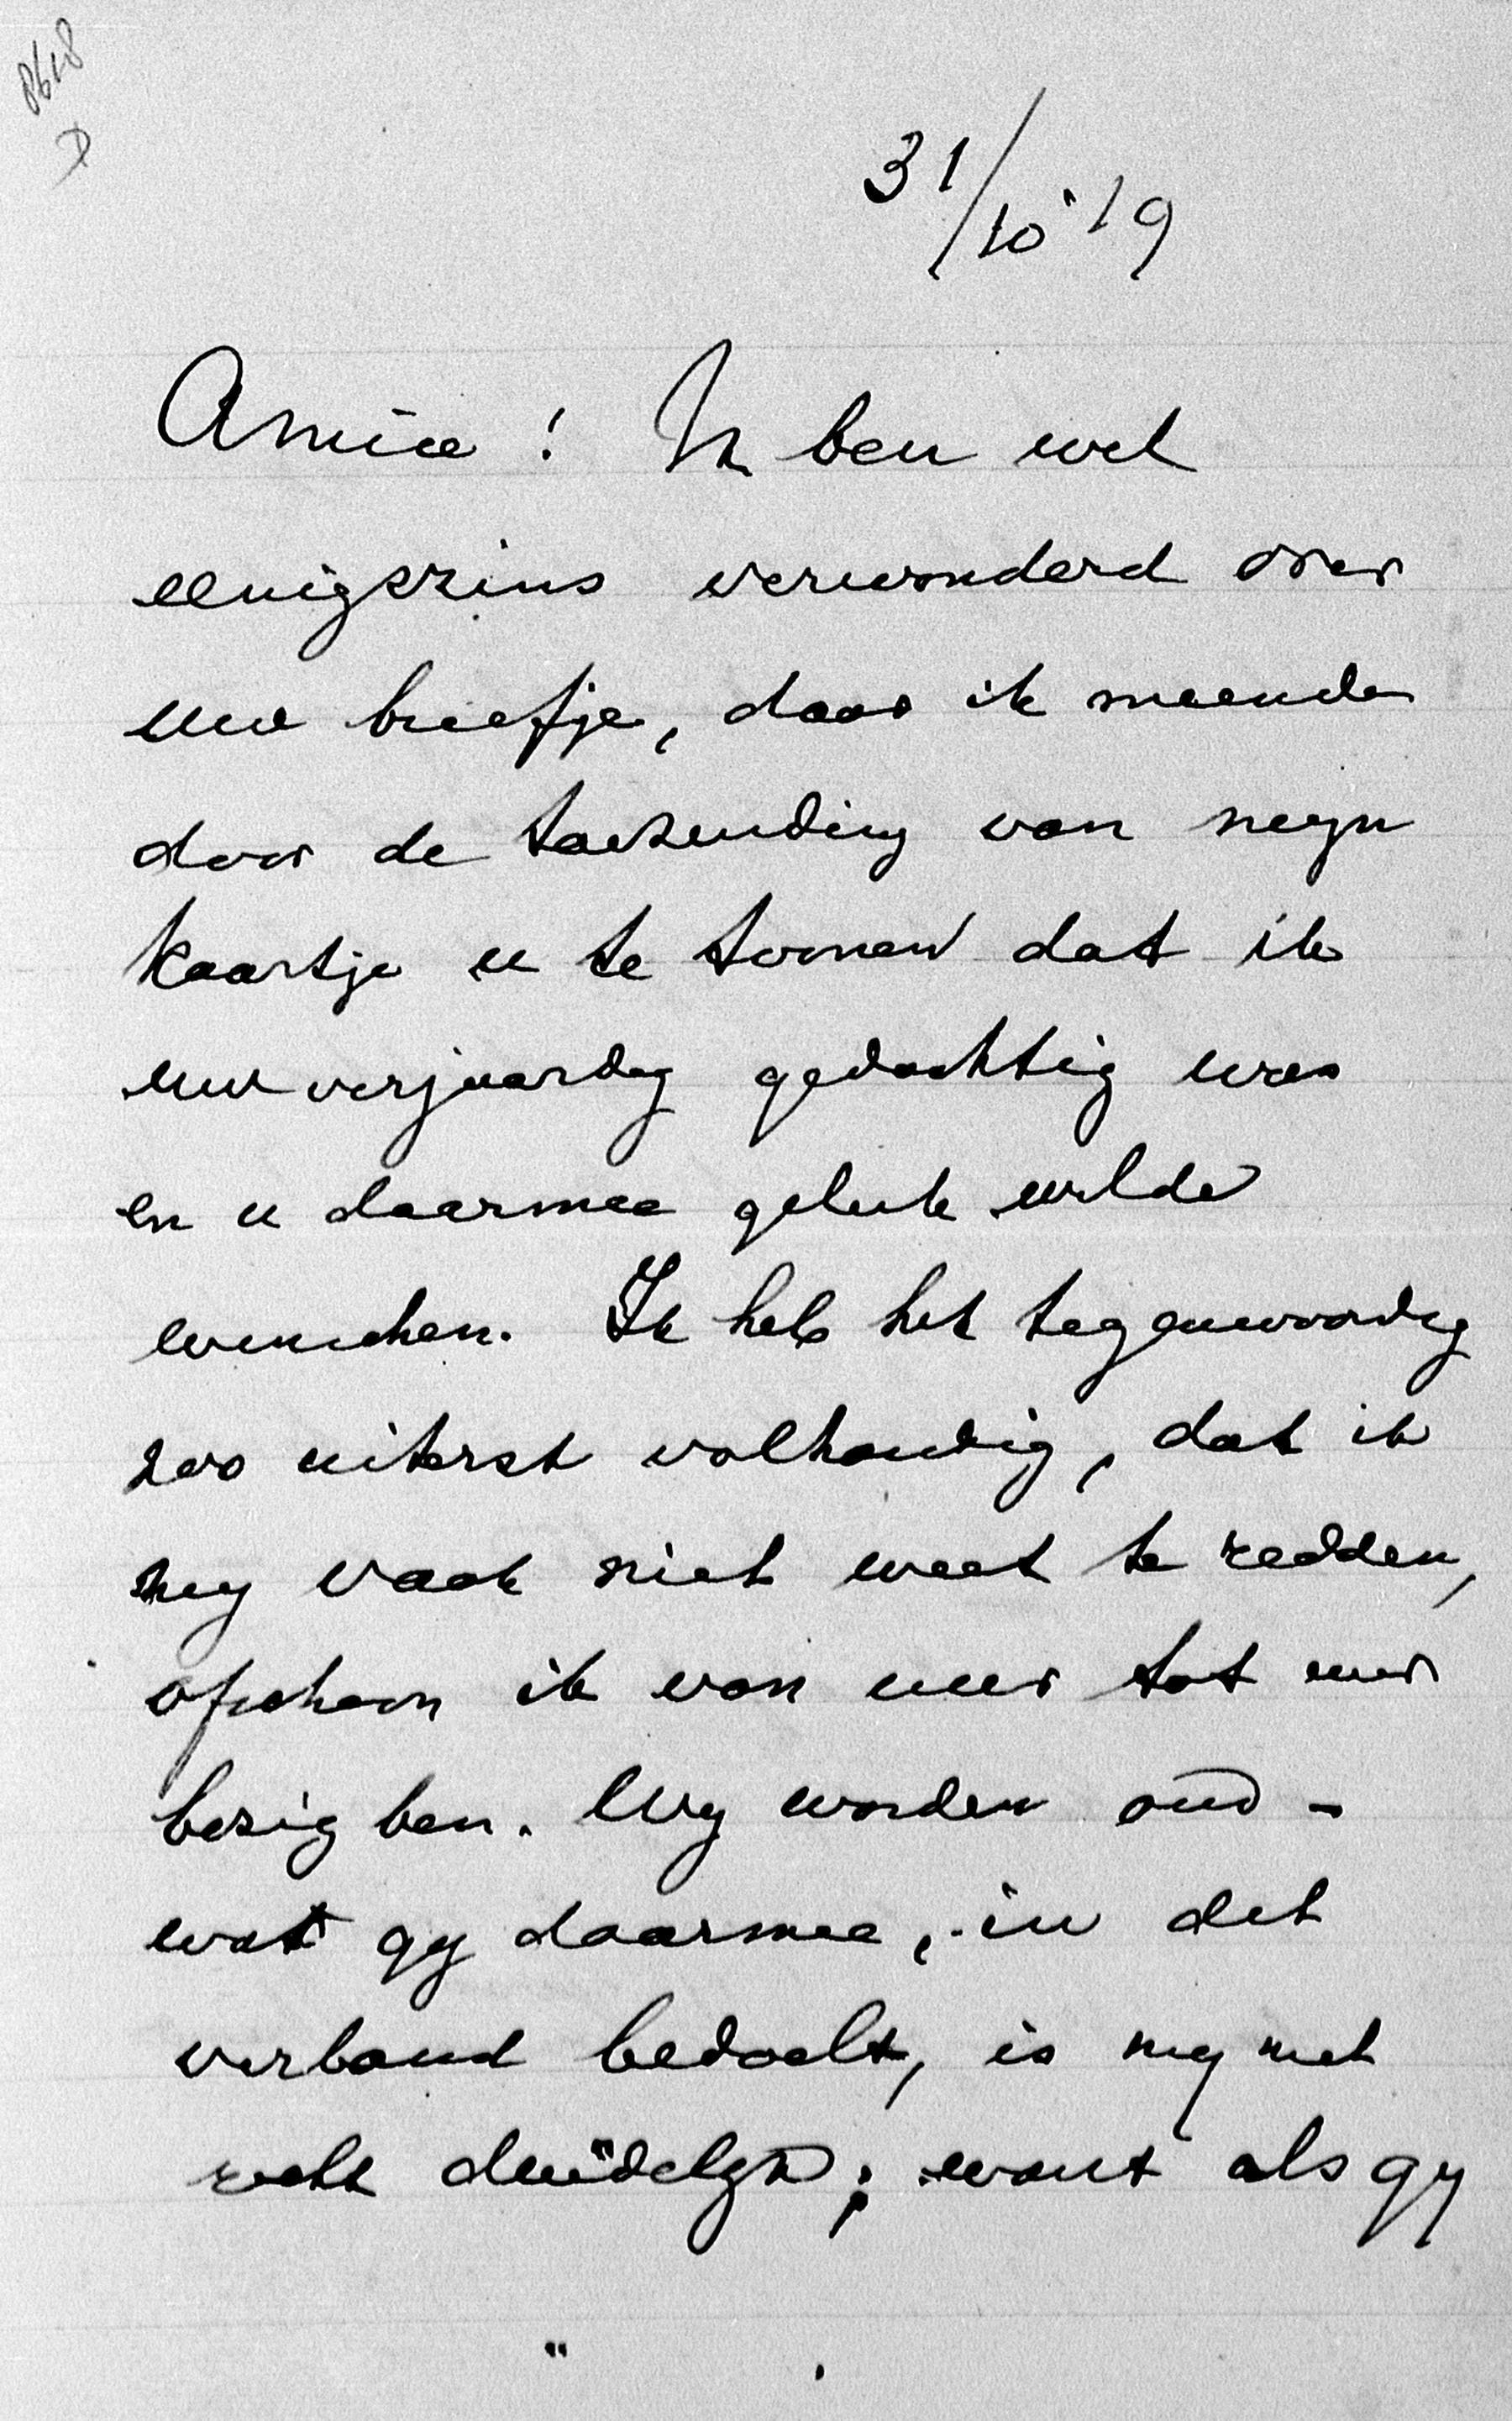 8618
D
31/10 '19
Amice! Ik ben wel
eenigszins verwonderd over
uw briefje, daar ik meende
door de toezending van mijn
kaartje u te toonen dat ik
uw verjaardag gedachtig was
en u daarmee geluk wilde
wenschen. Ik heb het tegenwoordig
zoo uiterst volhandig, dat ik
mij vaak niet weet te redden,
ofschoon ik van uur tot uur
bezig ben. Wij worden oud -
wat gij daarmee, in dit
verband bedoelt, is mij niet
recht duidelijk; want als gij